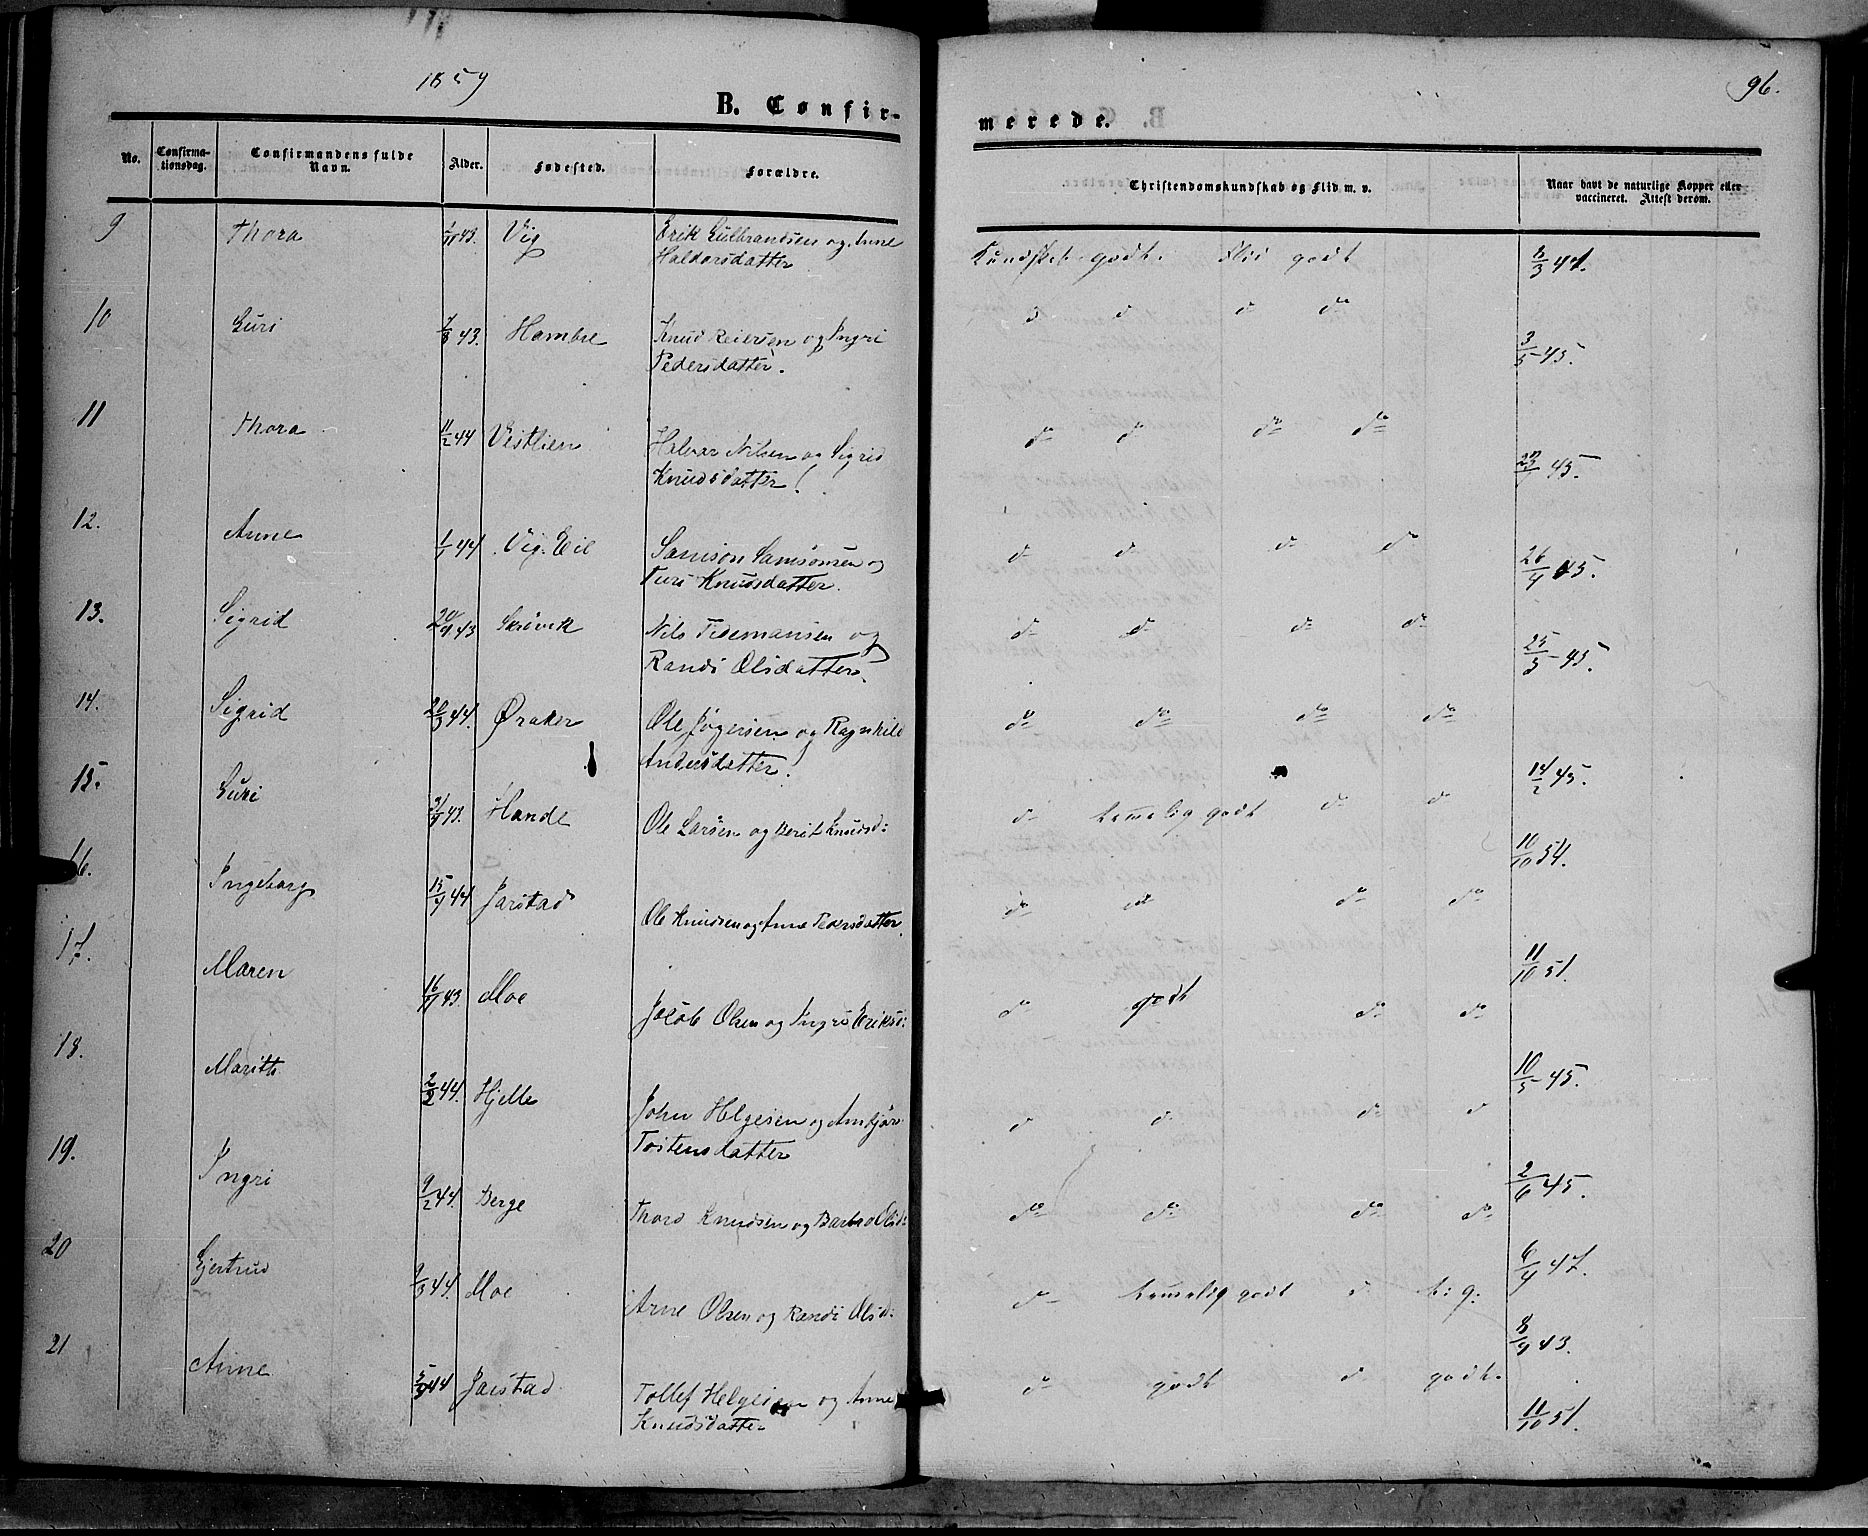 1859
96.
B. Confir-
merede.
No.
Confirma-
tionsdag.
Confirmandens fulde
Navn.
Alder.
Fødested.
Forældre.
Christendomskundskab og Flid m. v.
Naar havt de naturlige Kopper eller
vaccineret. Attest derom.
9 Thora 43. Vig Erik Gulbrandsen og Anne
Haldorsdatter godt. Flid godt 6/3 47.
10 Guri 43. Hambre Knud Reiersen og Ingri
Pedersdatter. d d do 3/5 45.
11 Thora 11/2 44 Vestlien Halvor Nilsen og Sigrid
Knudsdatter! do do do do 45.
12. Anne 44. Vig. Eie Samson Samsonsen og
Turi Knudsdatter. do do do do 26/4 45.
13. Sigrid 43 Skrivik Nils Tidemansen og
Randi Olsdatter. do do do do 25/5 45.
14. Sigrid 20/3 44. Øraker Ole og Ragnhild
Andersdatter. do do do do 14/2 45.
15. Guri 43. Hande Ole Larsen og Berit Knudsd:
do temmelig godt do do 10/10 54.
16. Ingeborg 15/4 44 Jarstad Ole Knudsen og Anne Pedersdatter.
do do do do 11/10 51.
17. Maren 16/11 43. Moe Jacob Olsen og Ingri Eriksd:
do godt do do 10/5 45.
18. Marith 2/2 44. Hjelle John Helgesen og
Tostensdatter d do do d 2/6 45.
19. Ingri 9/2 44. Berge Thord Knudsen og Barbro Olsd:
do do do do 6/4 47.
20 Gjertrud 9/3 44. Moe Arne Olsen og Randi Olsd:
do temmelig godt d t: g: 43.
21 Anne 44 Jarstad Tollef Helgesen og Anne
Knudsdatter do godt d godt. 11/10 51.